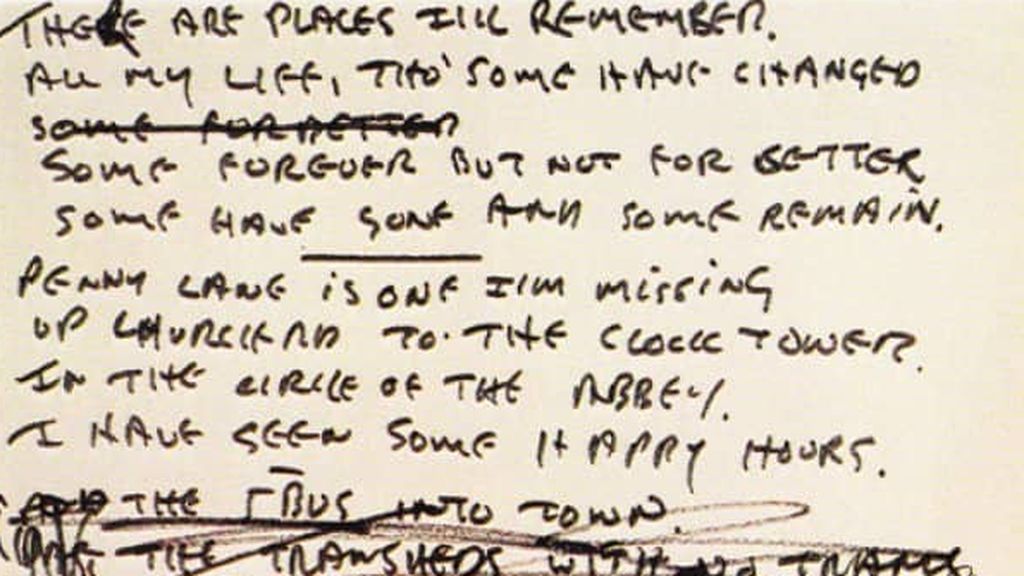 THERE ARE PLACES I'LL REMEMBER.
ALL MY LIFE, THO' SOME HAVE CHANGED
SOME FOR BETTER
SOME FOREVER BUT NOT FOR BETTER
SOME HAVE GONE AND SOME REMAIN.
PENNY LANE is ONE I'M missing
UP CHURCH RD TO THE CLOCK TOWER.
IN THE CIRCLE OF THE ABBEY.
I HAVE SEEN SOME HAPPY HOURS.
THE BUS INTO TOWN.
THE TRAMSHEDS WITH NO TRAMS